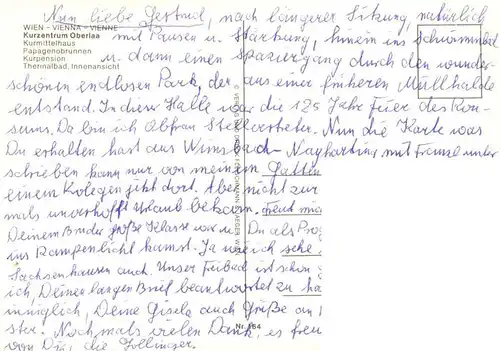 Nun liebe Gertrud, nach längerer Sitzung, natürlich
WIEN - VIENNA - VIENNE
Kurzentrum Oberlaa
Kurmittelhaus
Papagenobrunnen
Kurpension
Thermalbad, Innenansicht
mit Pausen u. Stärkung, hinein ins Schwimmbad
u. dann einen Spaziergang durch den wunder-
schönen endlosen Park, der aus einer früheren Müllhalde
entstand. In dieser Halle war die 125 Jahr feier des Kon-
sums. Da bin ich Obfrau Stellvertreter. Nun die Karte was
Du erhalten hast aus Wimsbach-Neydharting mit Franze unter
schrieben kann nur von meinem Gatten
einem Kolegen gibt dort. Aber nicht zur
mals unverhofft Urlaub bekam. Freut mic
Deinem Bruder große Klasse war u. Du als Prog
ins Rampenlicht kamst. Ja weich sehe
Sachsenhausen auch. Unser Freibad ist schon g
ich, Deinen langen Brief beantwortet zu ha
inniglich, Deine Gisela auch Grüße an
ster. Nochmals vielen Dank, es freu
von Dir, die
Nr. 164